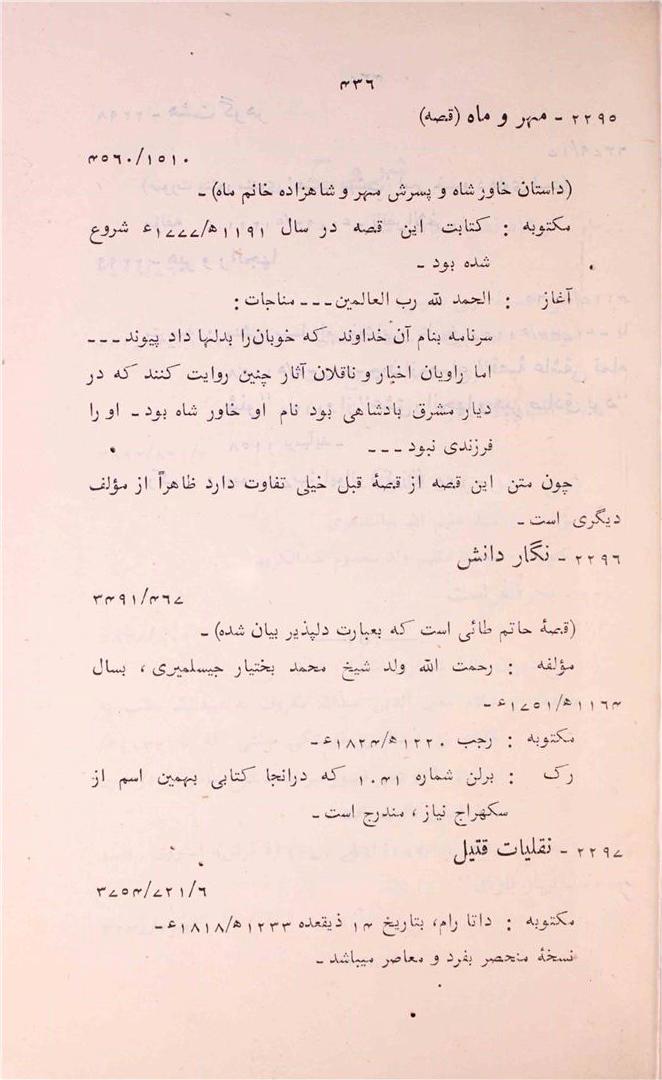 ۴۳۶
۲۲۹۵ - مہر و ماہ (قصہ)
۴۵۶۰/۱۵۱۰
(داستان خاور شاہ و پسرش مہر و شاہزادہ خانم ماہ) -
مکتوبہ : کتابت این قصہ در سال ۱۱۹۱ھ/۱۷۷۷ء شروع
شدہ بود -
آغاز : الحمد للہ رب العالمین - - - مناجات :
سرنامہ بنام آن خداوند کہ خوبان را بدلہا داد پیوند - - -
اما راویان اخبار و ناقلان آثار چنین روایت کنند کہ در
دیار مشرق بادشاھی بود نام او خاور شاہ بود - او را
فرزندی نبود - - -
چون متن این قصہ از قصۂ قبل خیلی تفاوت دارد ظاھراً از مؤلف
دیگری است -
۲۲۹۶ - نگار دانش
۳۴۹۱/۴۶۷
(قصۂ حاتم طائی است کہ بعبارت دلپذیر بیان شدہ) -
مؤلفہ : رحمت اللہ ولد شیخ محمد بختیار جیسلمیری ، بسال
۱۱۶۴ھ/۱۷۵۱ء -
مکتوبہ : رجب ۱۲۲۰ھ/۱۸۲۴ء -
رک : برلن شمارہ ۱۰۴۱ کہ درانجا کتابی بہمین اسم از
سکھراج نیاز ، مندرج است -
۲۲۹۷ - نقلیات قتیل
۳۷۵۴/۷۲۱/۶
مکتوبہ : داتا رام، بتاریخ ۱۴ ذیقعدہ ۱۲۳۳ھ/۱۸۱۸ء -
نسخۂ منحصر بفرد و معاصر میباشد -